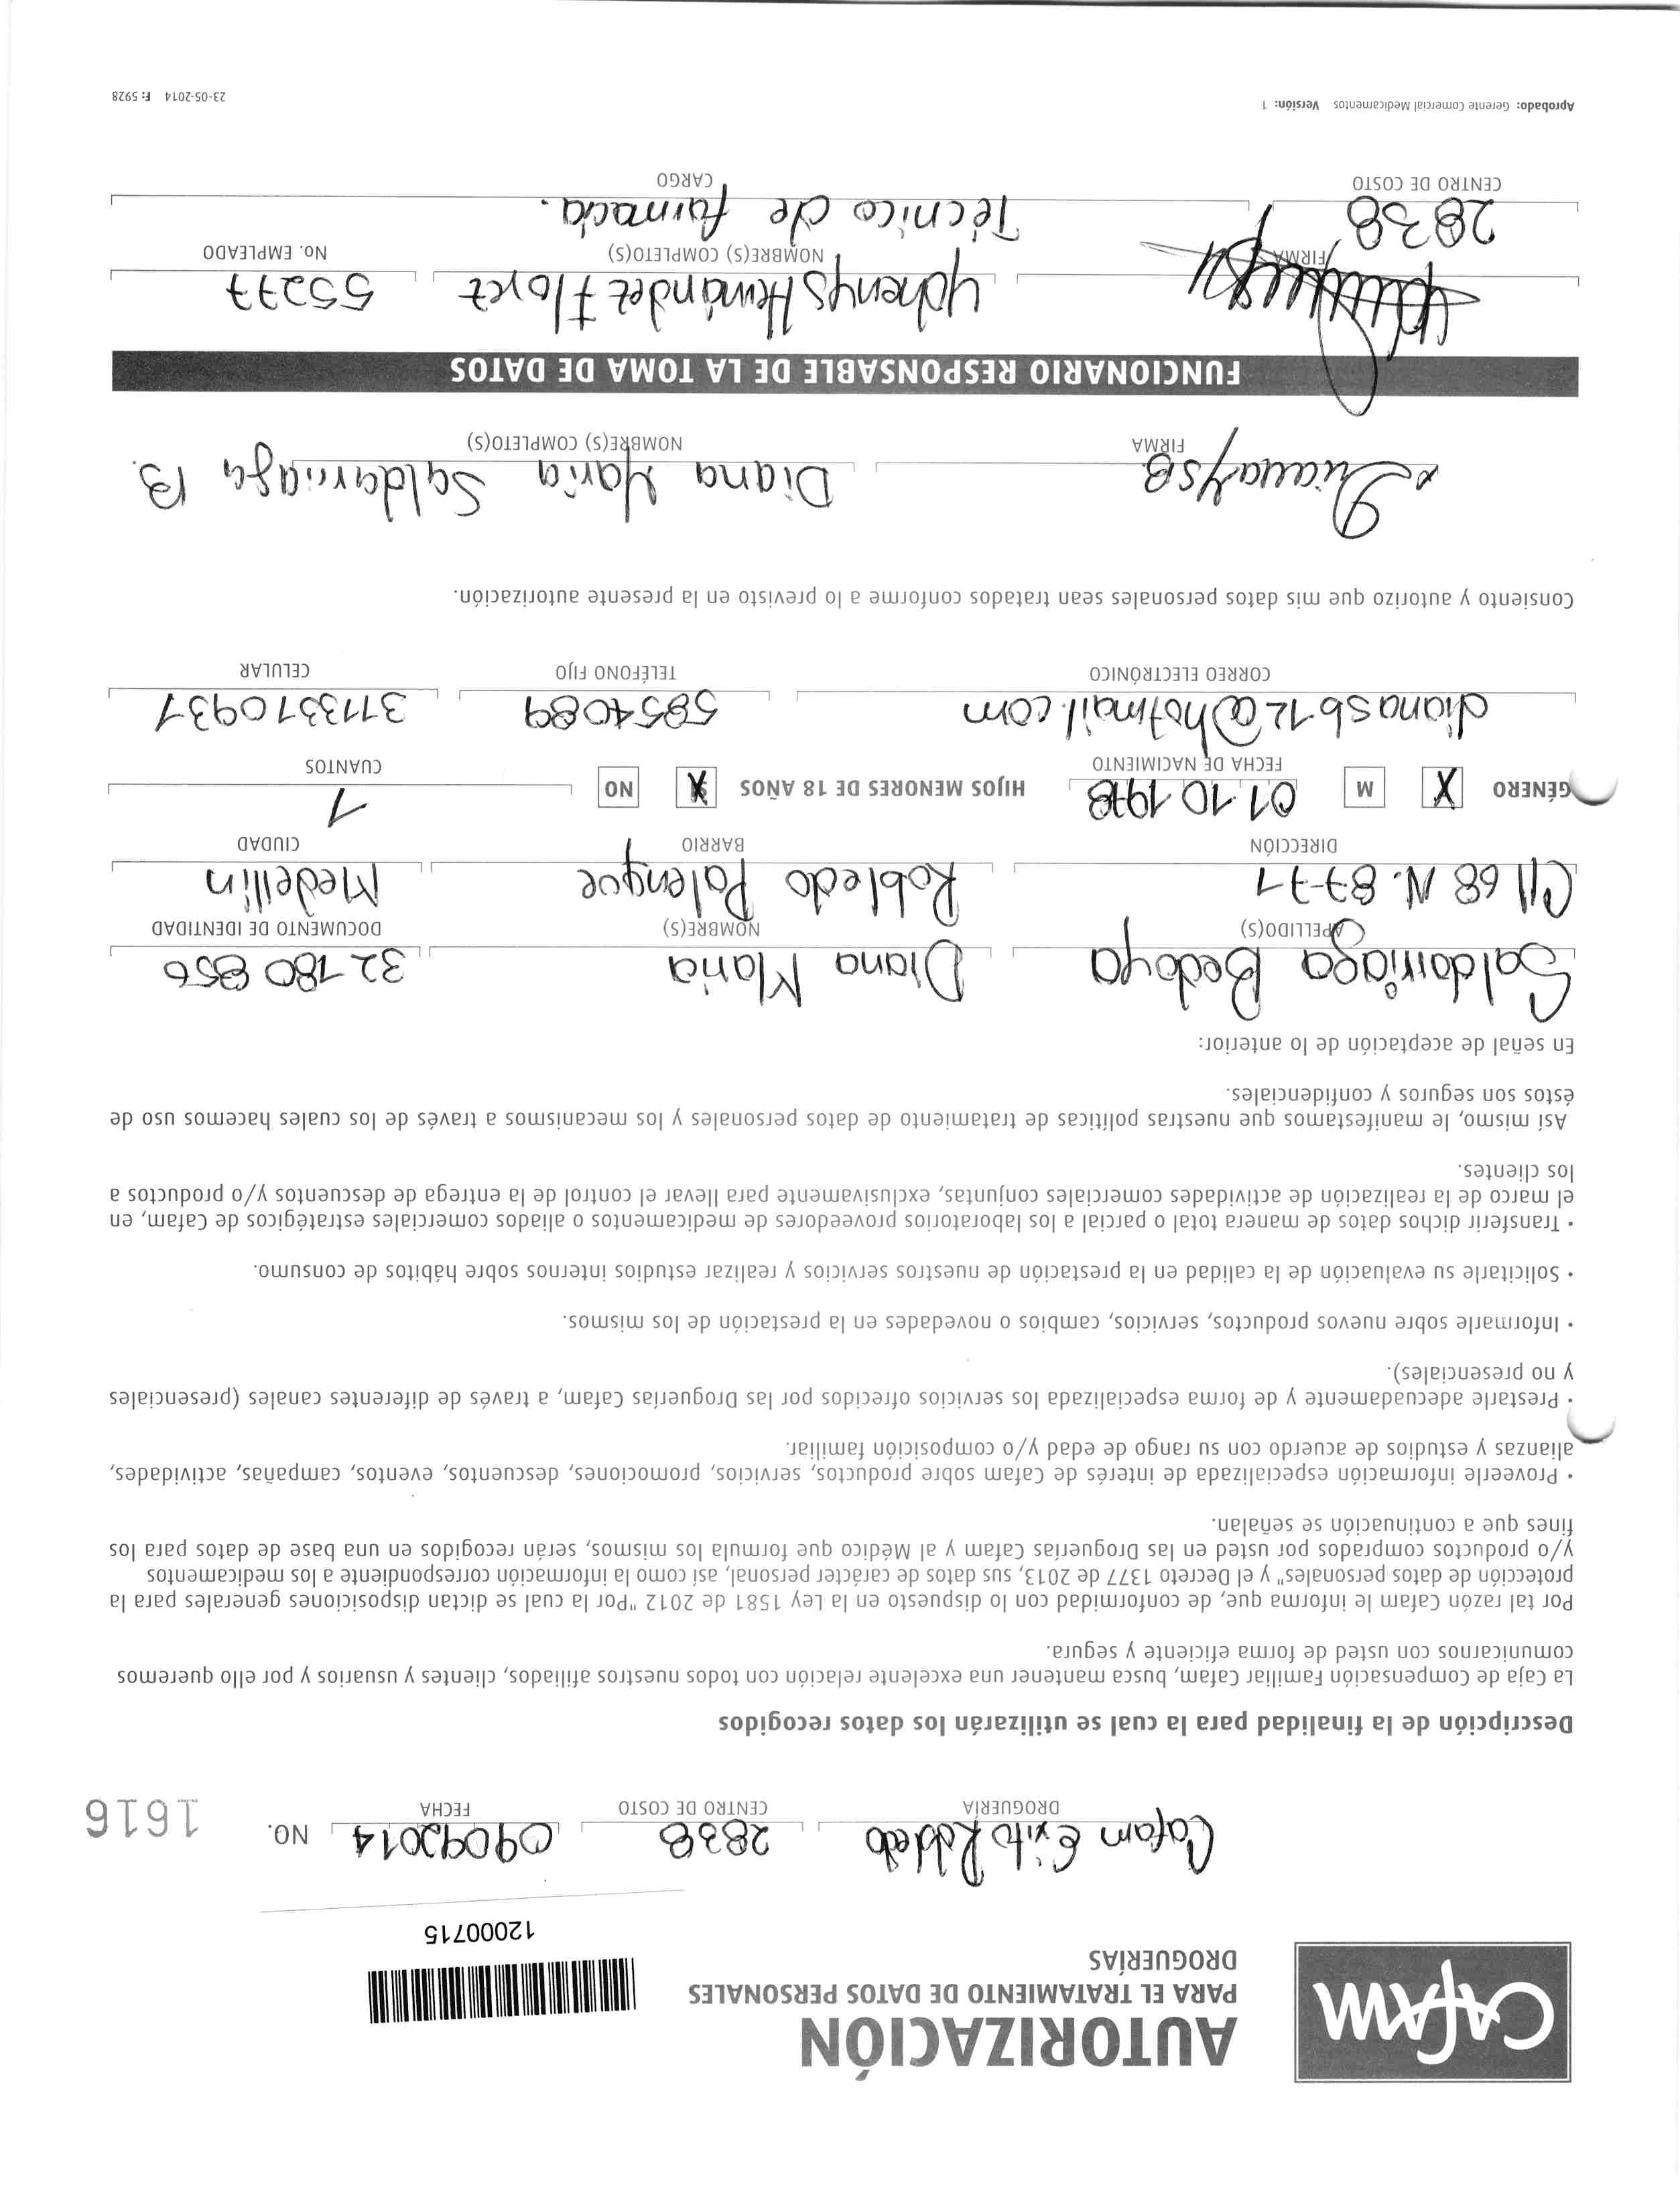 cafam
AUTORIZACIÓN
PARA EL TRATAMIENTO DE DATOS PERSONALES
DROGUERÍAS
12000715
Cafam Exito Robledo 2838 09092014 NO. 1616
DROGUERÍA CENTRO DE COSTO FECHA
Descripción de la finalidad para la cual se utilizarán los datos recogidos
La Caja de Compensación Familiar Cafam, busca mantener una excelente relación con todos nuestros afiliados, clientes y usuarios y por ello queremos
comunicarnos con usted de forma eficiente y segura.
Por tal razón Cafam le informa que, de conformidad con lo dispuesto en la Ley 1581 de 2012 "Por la cual se dictan disposiciones generales para la
protección de datos personales" y el Decreto 1377 de 2013, sus datos de carácter personal, así como la información correspondiente a los medicamentos
y/o productos comprados por usted en las Droguerías Cafam y al Médico que formula los mismos, serán recogidos en una base de datos para los
fines que a continuación se señalan.
• Proveerle información especializada de interés de Cafam sobre productos, servicios, promociones, descuentos, eventos, campañas, actividades,
alianzas y estudios de acuerdo con su rango de edad y/o composición familiar.
• Prestarle adecuadamente y de forma especializada los servicios ofrecidos por las Droguerías Cafam, a través de diferentes canales (presenciales
y no presenciales).
• Informarle sobre nuevos productos, servicios, cambios o novedades en la prestación de los mismos.
• Solicitarle su evaluación de la calidad en la prestación de nuestros servicios y realizar estudios internos sobre hábitos de consumo.
• Transferir dichos datos de manera total o parcial a los laboratorios proveedores de medicamentos o aliados comerciales estratégicos de Cafam, en
el marco de la realización de actividades comerciales conjuntas, exclusivamente para llevar el control de la entrega de descuentos y/o productos a
los clientes.
Así mismo, le manifestamos que nuestras políticas de tratamiento de datos personales y los mecanismos a través de los cuales hacemos uso de
éstos son seguros y confidenciales.
En señal de aceptación de lo anterior:
Saldarriaga Bedoya Diana Maria 32 180 856
APELLIDO(S) NOMBRE(S) DOCUMENTO DE IDENTIDAD
Cll 68 N. 87-71 Robledo Palenque Medellin
DIRECCIÓN BARRIO CIUDAD
GÉNERO X M 01 10 1978 HIJOS MENORES DE 18 AÑOS X NO 1
FECHA DE NACIMIENTO CUANTOS
dianasb12@hotmail.com 5854089 3113310937
CORREO ELECTRÓNICO TELÉFONO FIJO CELULAR
Consiento y autorizo que mis datos personales sean tratados conforme a lo previsto en la presente autorización.
x DianaMSB Diana Maria Saldarriaga B.
FIRMA NOMBRE(S) COMPLETO(S)
FUNCIONARIO RESPONSABLE DE LA TOMA DE DATOS
Yohenys Hernández Florez 55277
FIRMA NOMBRE(S) COMPLETO(S) No. EMPLEADO
2838 Técnico de farmacia.
CENTRO DE COSTO CARGO
Aprobado: Gerente Comercial Medicamentos Versión: 1 23-05-2014 F: 5928